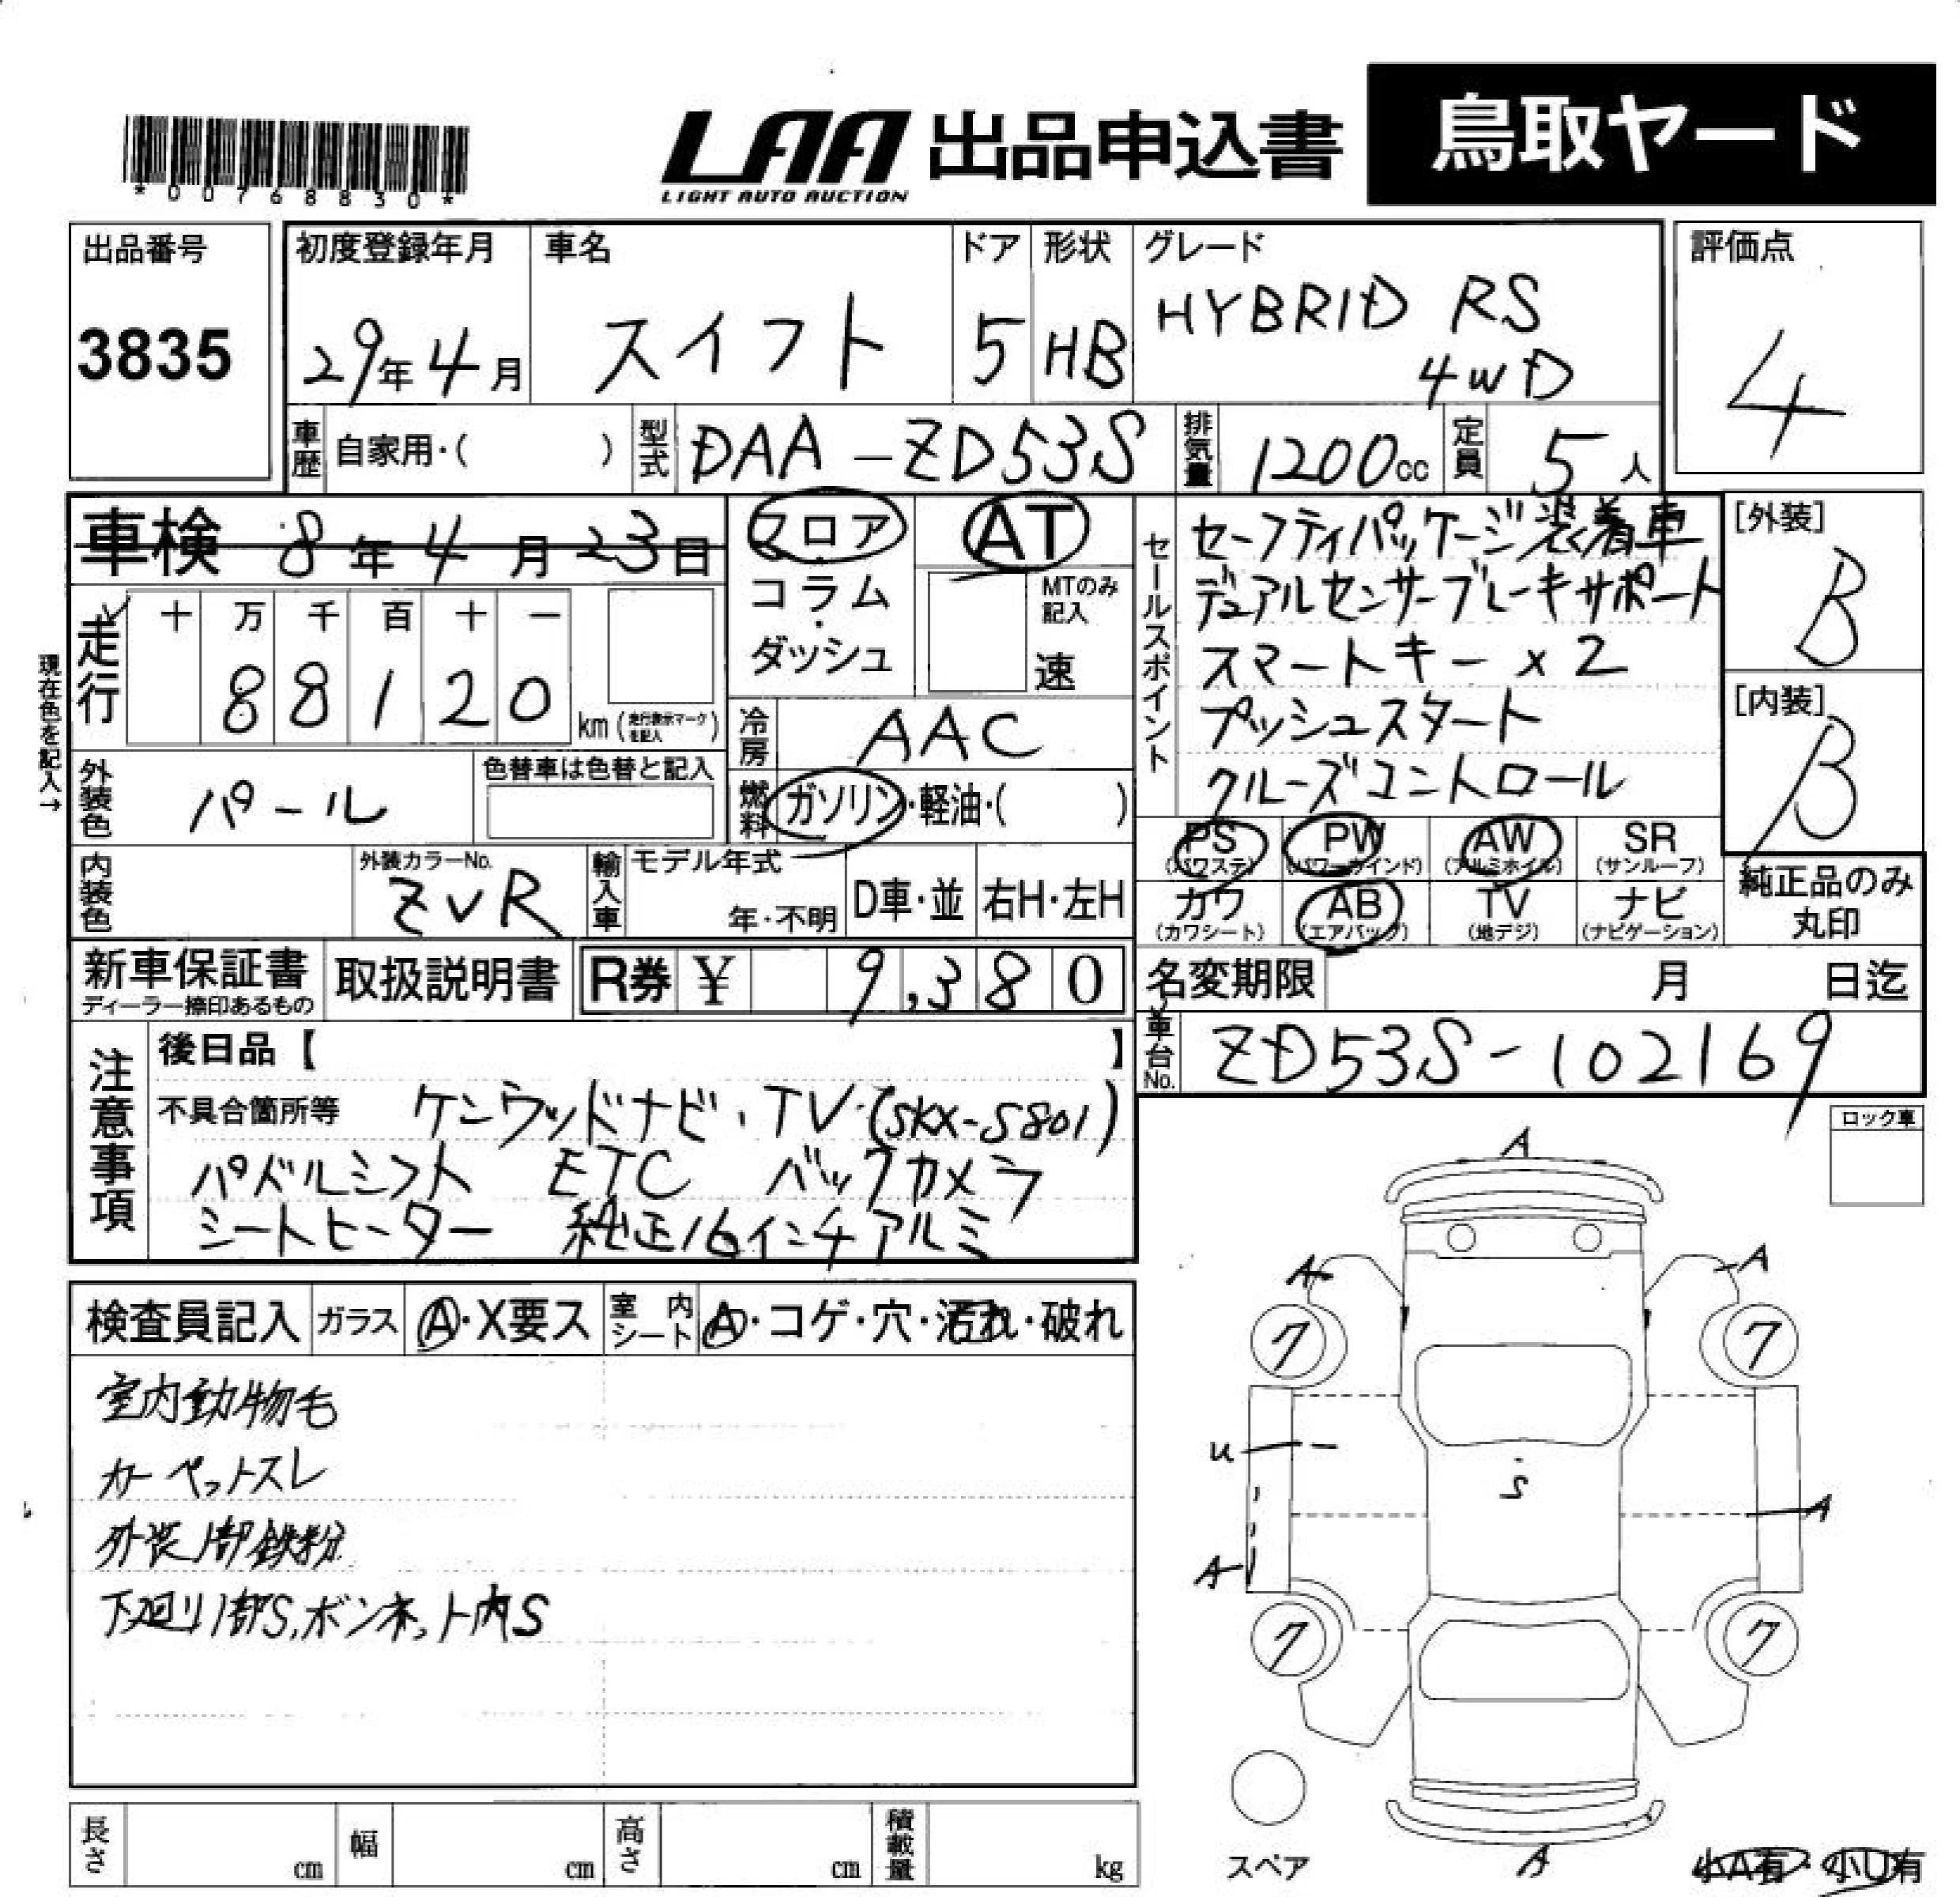 *00768830*
LAA 出品申込書 鳥取ヤード
LIGHT AUTO AUCTION
出品番号 初度登録年月 車名 ドア 形状 グレード 評価点
3835 29年4月 スイフト 5 HB HYBRID RS
4WD 4
車歴 自家用・( ) 型式 DAA-ZD53S 排気量 1200cc 定員 5人
車検 8年4月23日
フロア・コラム・ダッシュ
AT
MTのみ記入
速
走行 十 万 千 百 十 一
88120 km (走行表示マークを記入)
現在色を記入→
冷房 AAC
外装色 パール 色替車は色替と記入
燃料 ガソリン・軽油・( )
内装色 外装カラーNo. ZVR 輸入車 モデル年式 年・不明 D車・並 右H・左H
セールスポイント
セーフティパッケージ装着車
デュアルセンサーブレーキサポート
スマートキー×2
プッシュスタート
クルーズコントロール
[外装] B
[内装] B
PS (パワステ) PW (パワーウインド) AW (アルミホイル) SR (サンルーフ)
カワ (カワシート) AB (エアバック) TV (地デジ) ナビ (ナビゲーション)
純正品のみ丸印
新車保証書 取扱説明書 R券 ¥ 9,380
ディーラー捺印あるもの
名変期限 月 日迄
車台No. ZD53S-102169
注意事項
後日品【 】
不具合箇所等 ケンウッドナビ・TV(SKX-S801)
パドルシフト ETC バックカメラ
シートヒーター 純正16インチアルミ
ロック車
検査員記入 ガラス A・X要ス 室内シート A・コゲ・穴・汚れ・破れ
室内動物毛
カーペットスレ
外装1部鉄粉
下廻り1部S、ボンネット内S
A
A A
7 7
U
S
A
A
7 7
スペア
A
小A有・小U有
長さ cm 幅 cm 高さ cm 積載量 kg